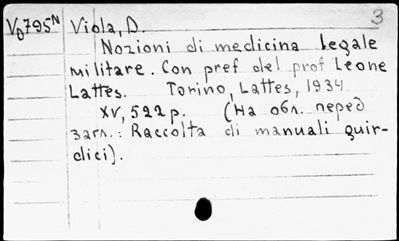 3
V₀795ᴺ Viola, D.
Nozioni di medicina legale
militare. Con pref del prof Leone
Lattes. Torino, Lattes, 1934.
XV, 522 p. (На обл. перед
загл.: Raccolta di manuali guir-
dici).